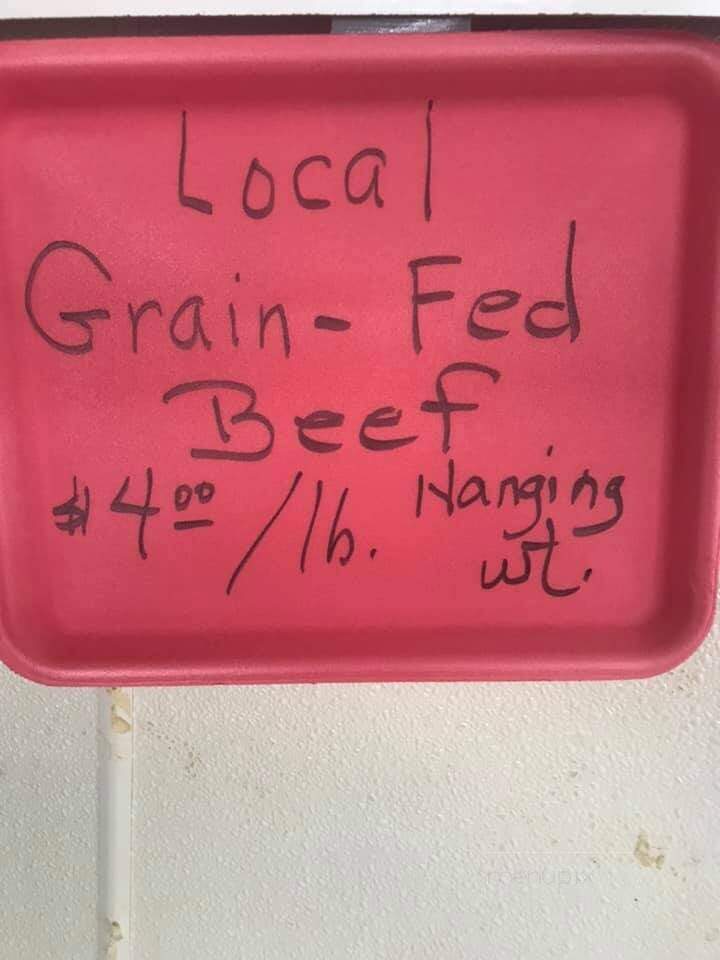 Local
Grain-Fed
Beef
$4.00/lb. Hanging
wt.
menupix